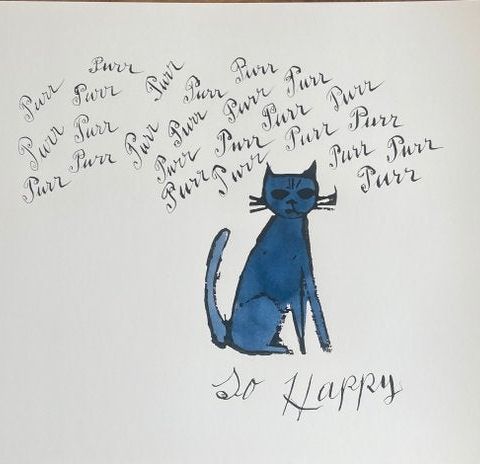 Purr Purr Purr Purr
Purr Purr Purr Purr Purr
Purr Purr Purr Purr Purr Purr Purr Purr
Purr Purr Purr Purr Purr Purr
Purr Purr
So Happy